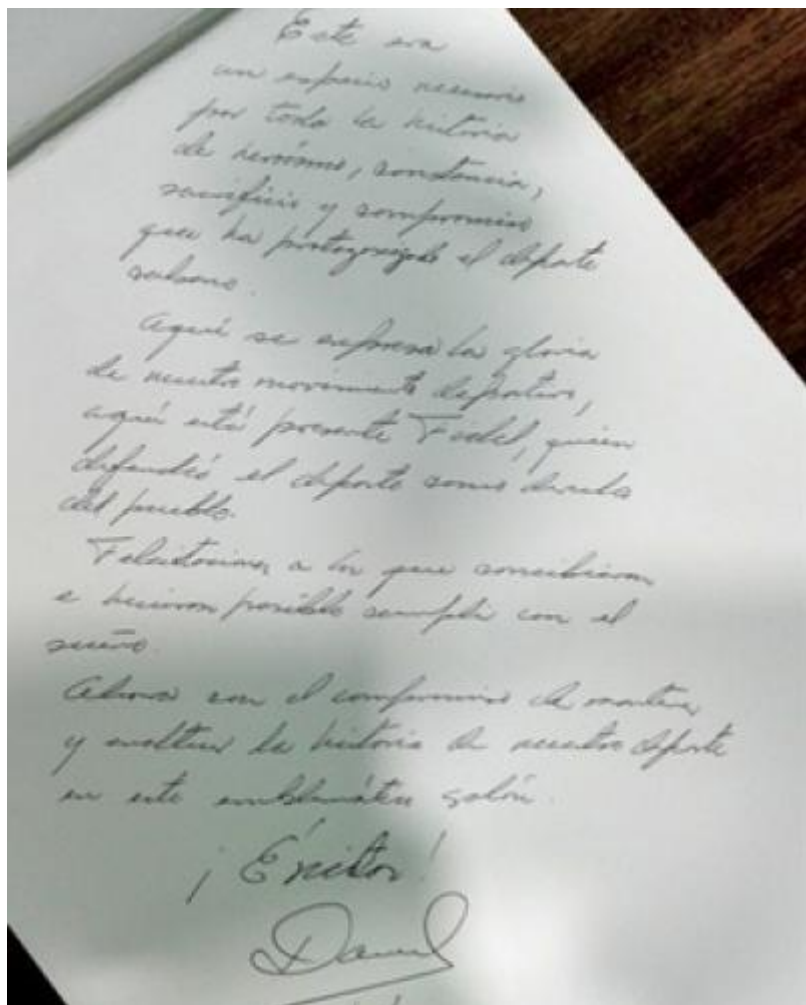 Este era
un espacio necesario
por toda la historia
de heroísmo, constancia,
sacrificio y compromiso
que ha protagonizado el deporte
cubano.
Aquí se expresa la gloria
de nuestro movimiento deportivo,
aquí está presente Fidel, quien
defendió el deporte como derecho
del pueblo.
Felicitaciones a los que concibieron
e hicieron posible cumplir con el
sueño.
Ahora con el compromiso de mantener
y enaltecer la historia de nuestro deporte
en este emblemático salón.
¡Éxitos!